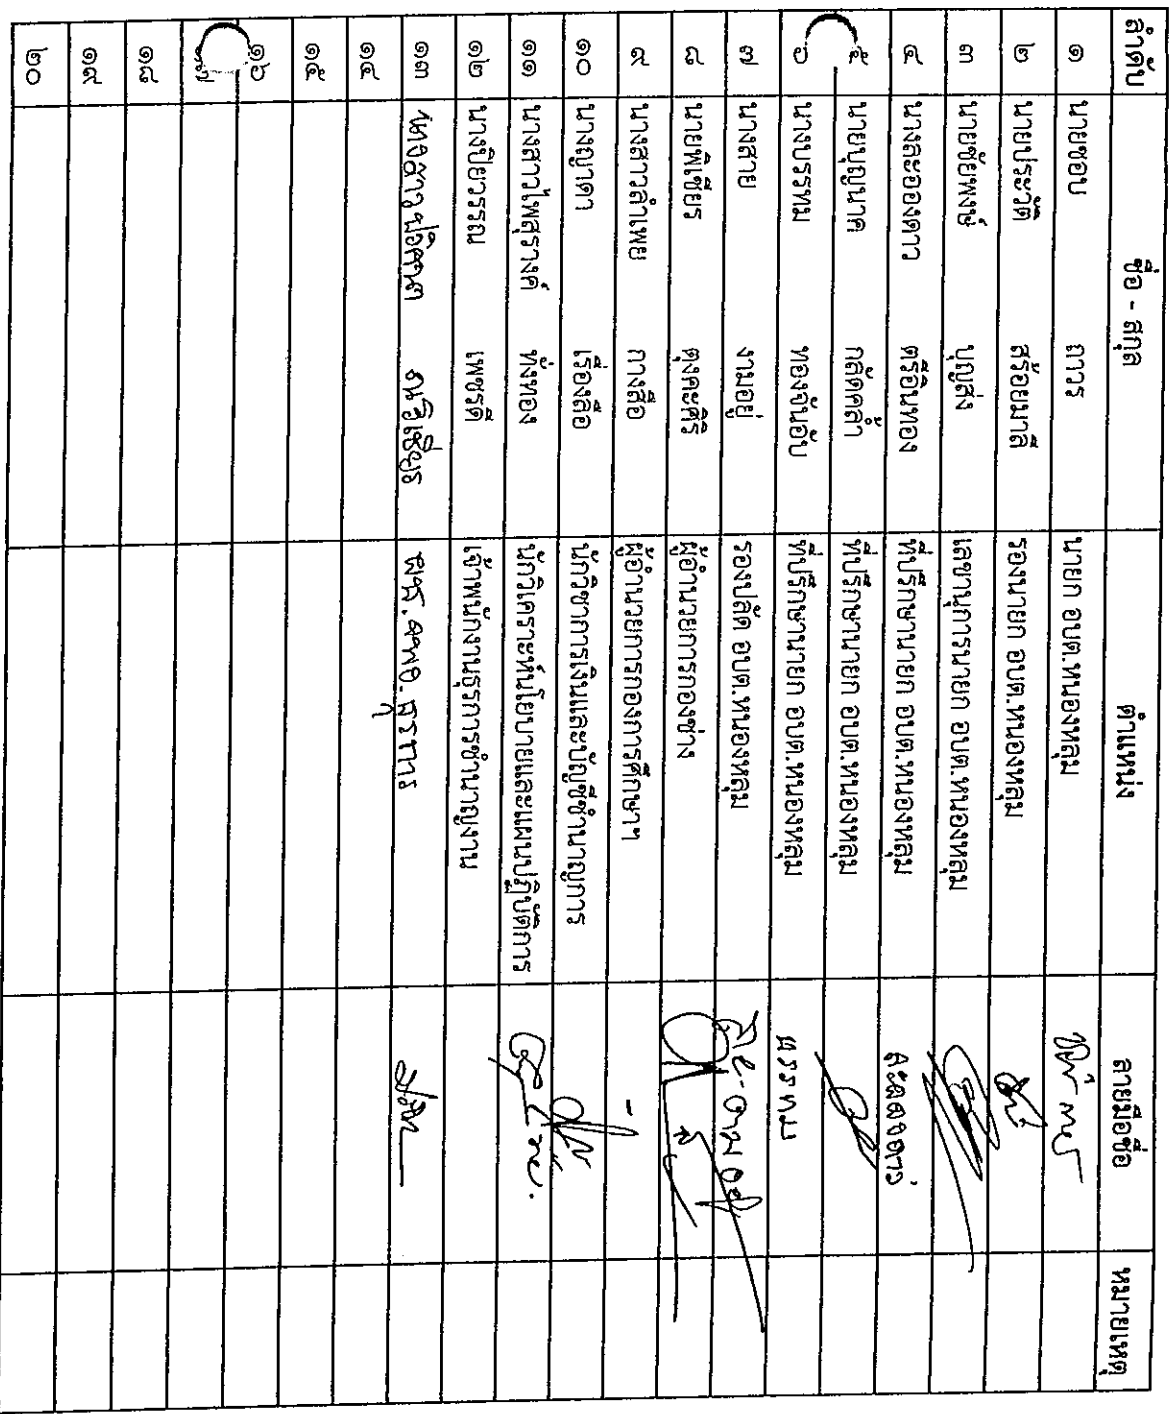 ลำดับ ชื่อ - สกุล ตำแหน่ง ลายมือชื่อ หมายเหตุ
๑ นายชอบ ถาวร นายก อบต.หนองหลุม
๒ นายประวัติ สร้อยมาลี รองนายก อบต.หนองหลุม
๓ นายชัยพงษ์ บุญส่ง เลขานุการนายก อบต.หนองหลุม
๔ นางละอองดาว ศรีอินทอง ที่ปรึกษานายก อบต.หนองหลุม ละอองดาว
๕ นายบุญนาค กลัดคล้ำ ที่ปรึกษานายก อบต.หนองหลุม
๖ นางบรรทม ทองจันอับ ที่ปรึกษานายก อบต.หนองหลุม บรรทม
๗ นางสาย งามอยู่ รองปลัด อบต.หนองหลุม สาย งามอยู่
๘ นายพิเชียร ตุงคะศิริ ผู้อำนวยการกองช่าง
๙ นางสาวลำเพย กางสือ ผู้อำนวยการกองการศึกษาฯ -
๑๐ นางญาดา เรืองลือ นักวิชาการเงินและบัญชีชำนาญการ
๑๑ นางสาวไพสุรางค์ ทั่งทอง นักวิเคราะห์นโยบายและแผนปฏิบัติการ
๑๒ นางปิยวรรณ เพชรดี เจ้าพนักงานธุรการชำนาญงาน
๑๓ นางสาว ผช.จพง.ธุรการ
๑๔
๑๕
๑๖
๑๗
๑๘
๑๙
๒๐